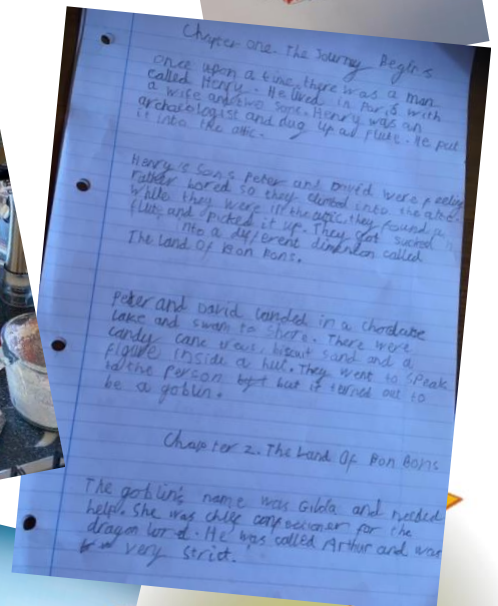 Chapter one. The Journey Begins
Once upon a time, there was a man
called Henry. He lived in Paris with
a wife and two sons. Henry was an
archaologist and dug up a flute. He put
it into the attic.
Henry's sons Peter and David were feeling
rather bored so they climbed into the attic.
While they were in the attic they found a
flute and picked it up. They got sucked
into a different dimension called
The Land Of Bon Bons.
Peter and David landed in a chocolate
lake and swam to shore. There were
candy cane trees, biscuit sand and a
figure inside a hut. They went to speak
to the person but it turned out to
be a goblin.
Chapter 2. The Land Of Bon Bons
The goblin's name was Gilda and needed
help. She was chief confectioner for the
dragon lord. He was called Arthur and was
very strict.